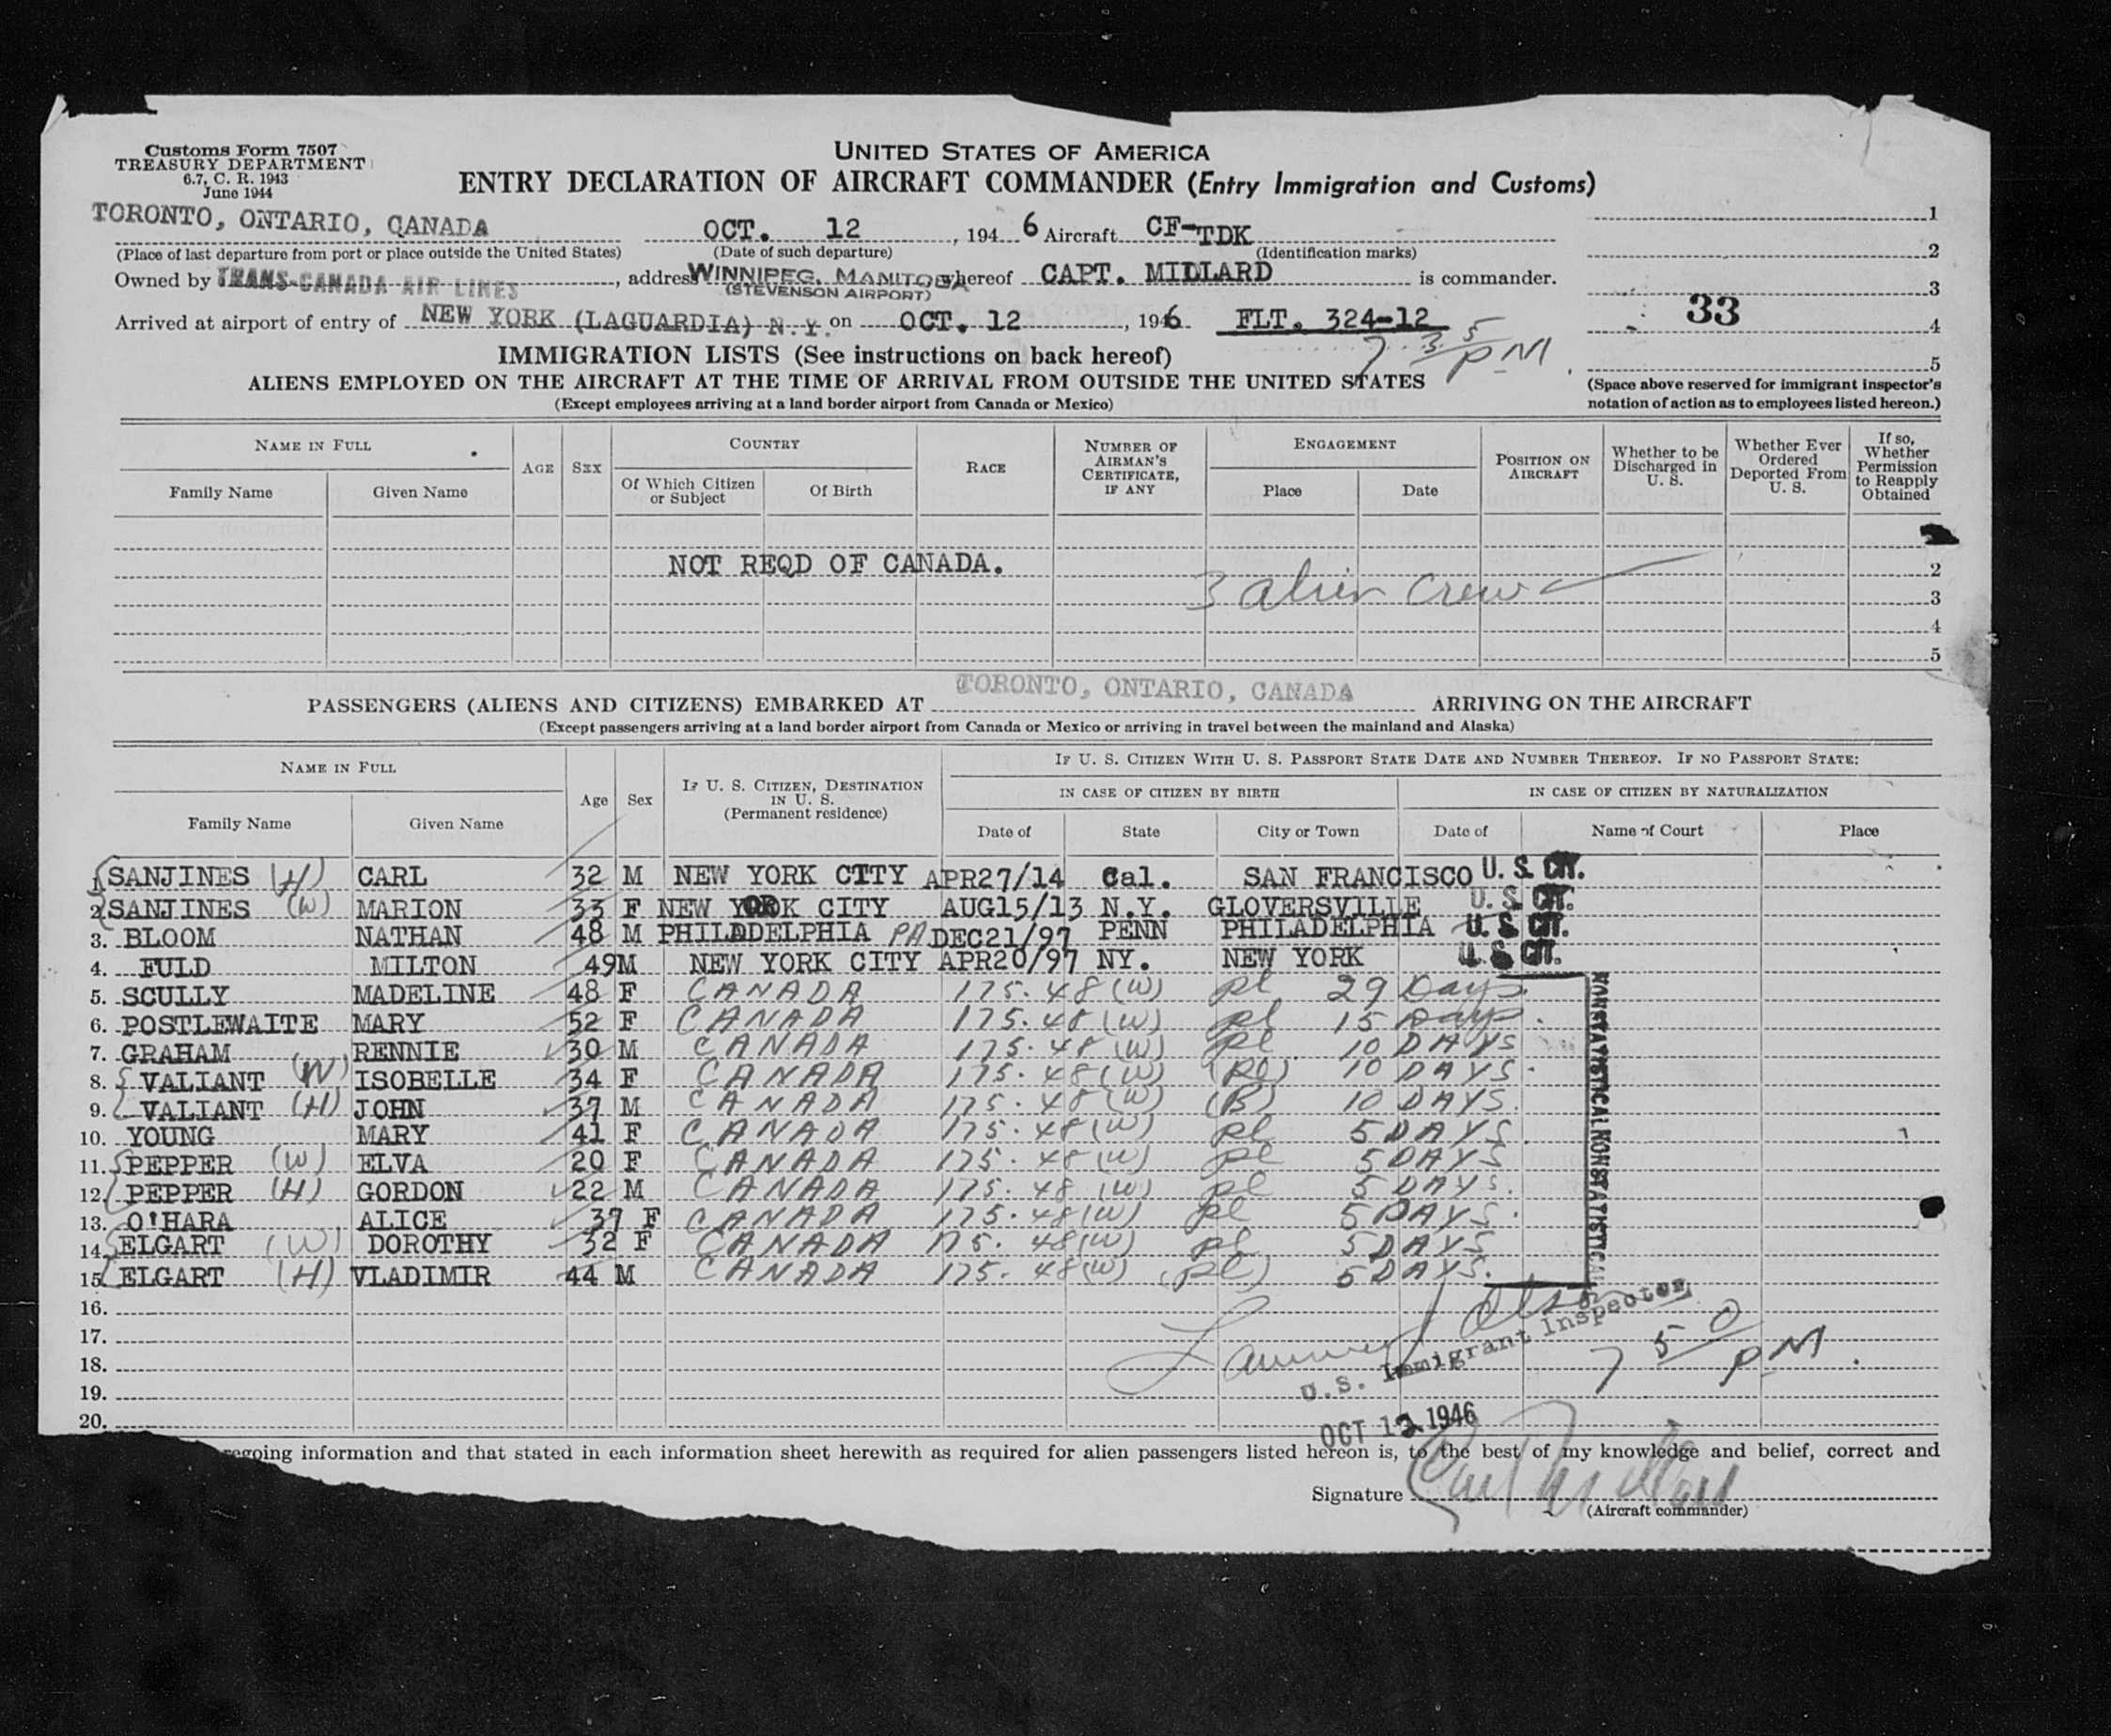 Customs Form 7507
TREASURY DEPARTMENT
6.7, C. R. 1943
June 1944
UNITED STATES OF AMERICA
ENTRY DECLARATION OF AIRCRAFT COMMANDER (Entry Immigration and Customs)
TORONTO, ONTARIO, CANADA OCT. 12, 1946 Aircraft CF-TDK
(Place of last departure from port or place outside the United States) (Date of such departure) (Identification marks)
Owned by TRANS-CANADA AIR LINES, address WINNIPEG, MANITOBA whereof CAPT. MILLARD is commander.
(STEVENSON AIRPORT)
Arrived at airport of entry of NEW YORK (LAGUARDIA) N.Y. on OCT. 12, 1946 FLT. 324-12
7 35 PM
1
2
3
33
4
5
IMMIGRATION LISTS (See instructions on back hereof)
ALIENS EMPLOYED ON THE AIRCRAFT AT THE TIME OF ARRIVAL FROM OUTSIDE THE UNITED STATES
(Except employees arriving at a land border airport from Canada or Mexico)
(Space above reserved for immigrant inspector's notation of action as to employees listed hereon.)
NAME IN FULL
Family Name Given Name
AGE SEX
COUNTRY
Of Which Citizen or Subject Of Birth
RACE
NUMBER OF AIRMAN'S CERTIFICATE, IF ANY
ENGAGEMENT
Place Date
POSITION ON AIRCRAFT
Whether to be Discharged in U. S.
Whether Ever Ordered Deported From U. S.
If so, Whether Permission to Reapply Obtained
NOT REQD OF CANADA.
3 alien crew
2
3
4
5
PASSENGERS (ALIENS AND CITIZENS) EMBARKED AT TORONTO, ONTARIO, CANADA ARRIVING ON THE AIRCRAFT
(Except passengers arriving at a land border airport from Canada or Mexico or arriving in travel between the mainland and Alaska)
NAME IN FULL
Family Name Given Name
Age Sex
IF U. S. CITIZEN, DESTINATION IN U. S.
(Permanent residence)
IF U. S. CITIZEN WITH U. S. PASSPORT STATE DATE AND NUMBER THEREOF. IF NO PASSPORT STATE:
IN CASE OF CITIZEN BY BIRTH IN CASE OF CITIZEN BY NATURALIZATION
Date of State City or Town Date of Name of Court Place
1 SANJINES (H) CARL 32 M NEW YORK CITY APR27/14 Cal. SAN FRANCISCO U. S. CIT.
2 SANJINES (W) MARION 33 F NEW YORK CITY AUG15/13 N.Y. GLOVERSVILLE U. S. CIT.
3. BLOOM NATHAN 48 M PHILDDELPHIA PA DEC21/97 PENN PHILADELPHIA U. S. CIT.
4. FULD MILTON 49M NEW YORK CITY APR20/97 NY. NEW YORK U. S. CIT.
5. SCULLY MADELINE 48 F CANADA 175.48 (W) pl 29 Days
6. POSTLEWAITE MARY 52 F CANADA 175.48 (W) pl 15 Days.
7. GRAHAM RENNIE 30 M CANADA 175.48 (W) pl 10 DAYS
8. VALIANT (W) ISOBELLE 34 F CANADA 175.48 (W) (pl) 10 DAYS.
9. VALIANT (H) JOHN 37 M CANADA 175.48 (W) (B) 10 DAYS.
10. YOUNG MARY 41 F CANADA 175.48 (W) pl 5 DAYS.
11. PEPPER (W) ELVA 20 F CANADA 175.48 (W) pl 5 DAYS
12. PEPPER (H) GORDON 22 M CANADA 175.48 (W) pl 5 DAYS.
13. O'HARA ALICE 37 F CANADA 175.48 (W) pl 5 DAYS.
14. ELGART (W) DOROTHY 32 F CANADA 175.48 (W) pl 5 DAYS
15. ELGART (H) VLADIMIR 44 M CANADA 175.48 (W) (pl) 5 DAYS.
NONSTATISTICAL NONSTATISTICAL
16.
17.
18.
19.
20.
U.S. Immigrant Inspector
7 50 PM.
OCT 12 1946
regoing information and that stated in each information sheet herewith as required for alien passengers listed hereon is, to the best of my knowledge and belief, correct and
Signature Carl Millard
(Aircraft commander)